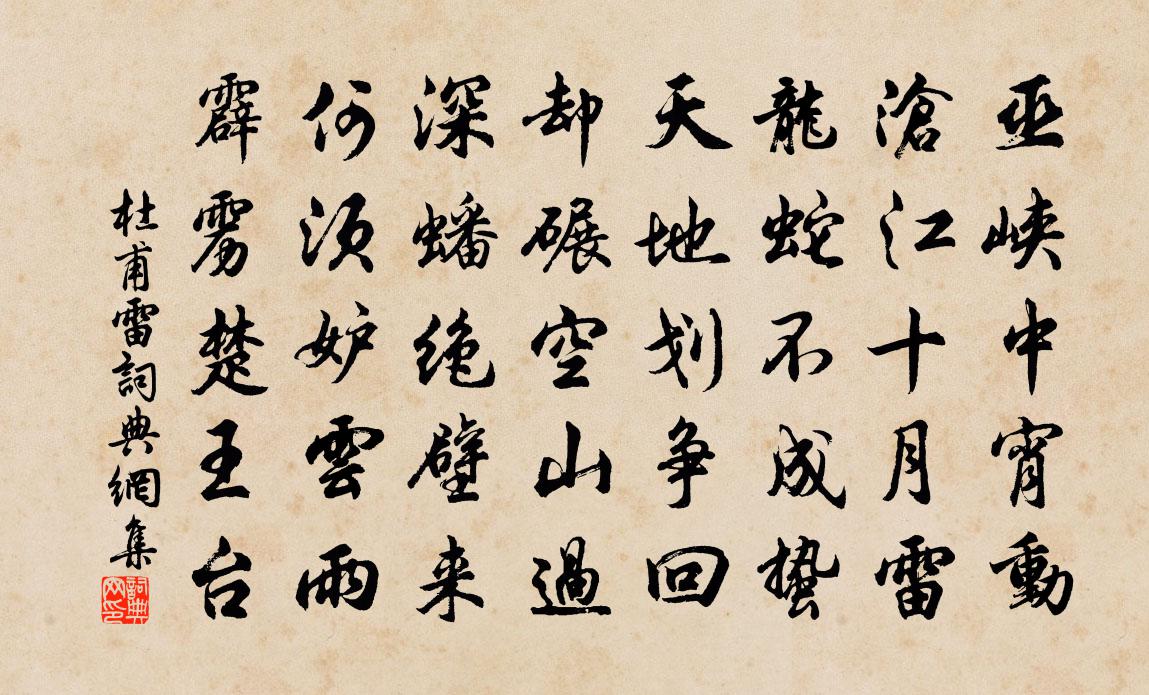 巫峡中宵動
滄江十月雷
龍蛇不成蛰
天地划争回
却碾空山過
深蟠绝壁来
何须妒雲雨
霹雳楚王台
杜甫雷詞典網集
詞典
网印